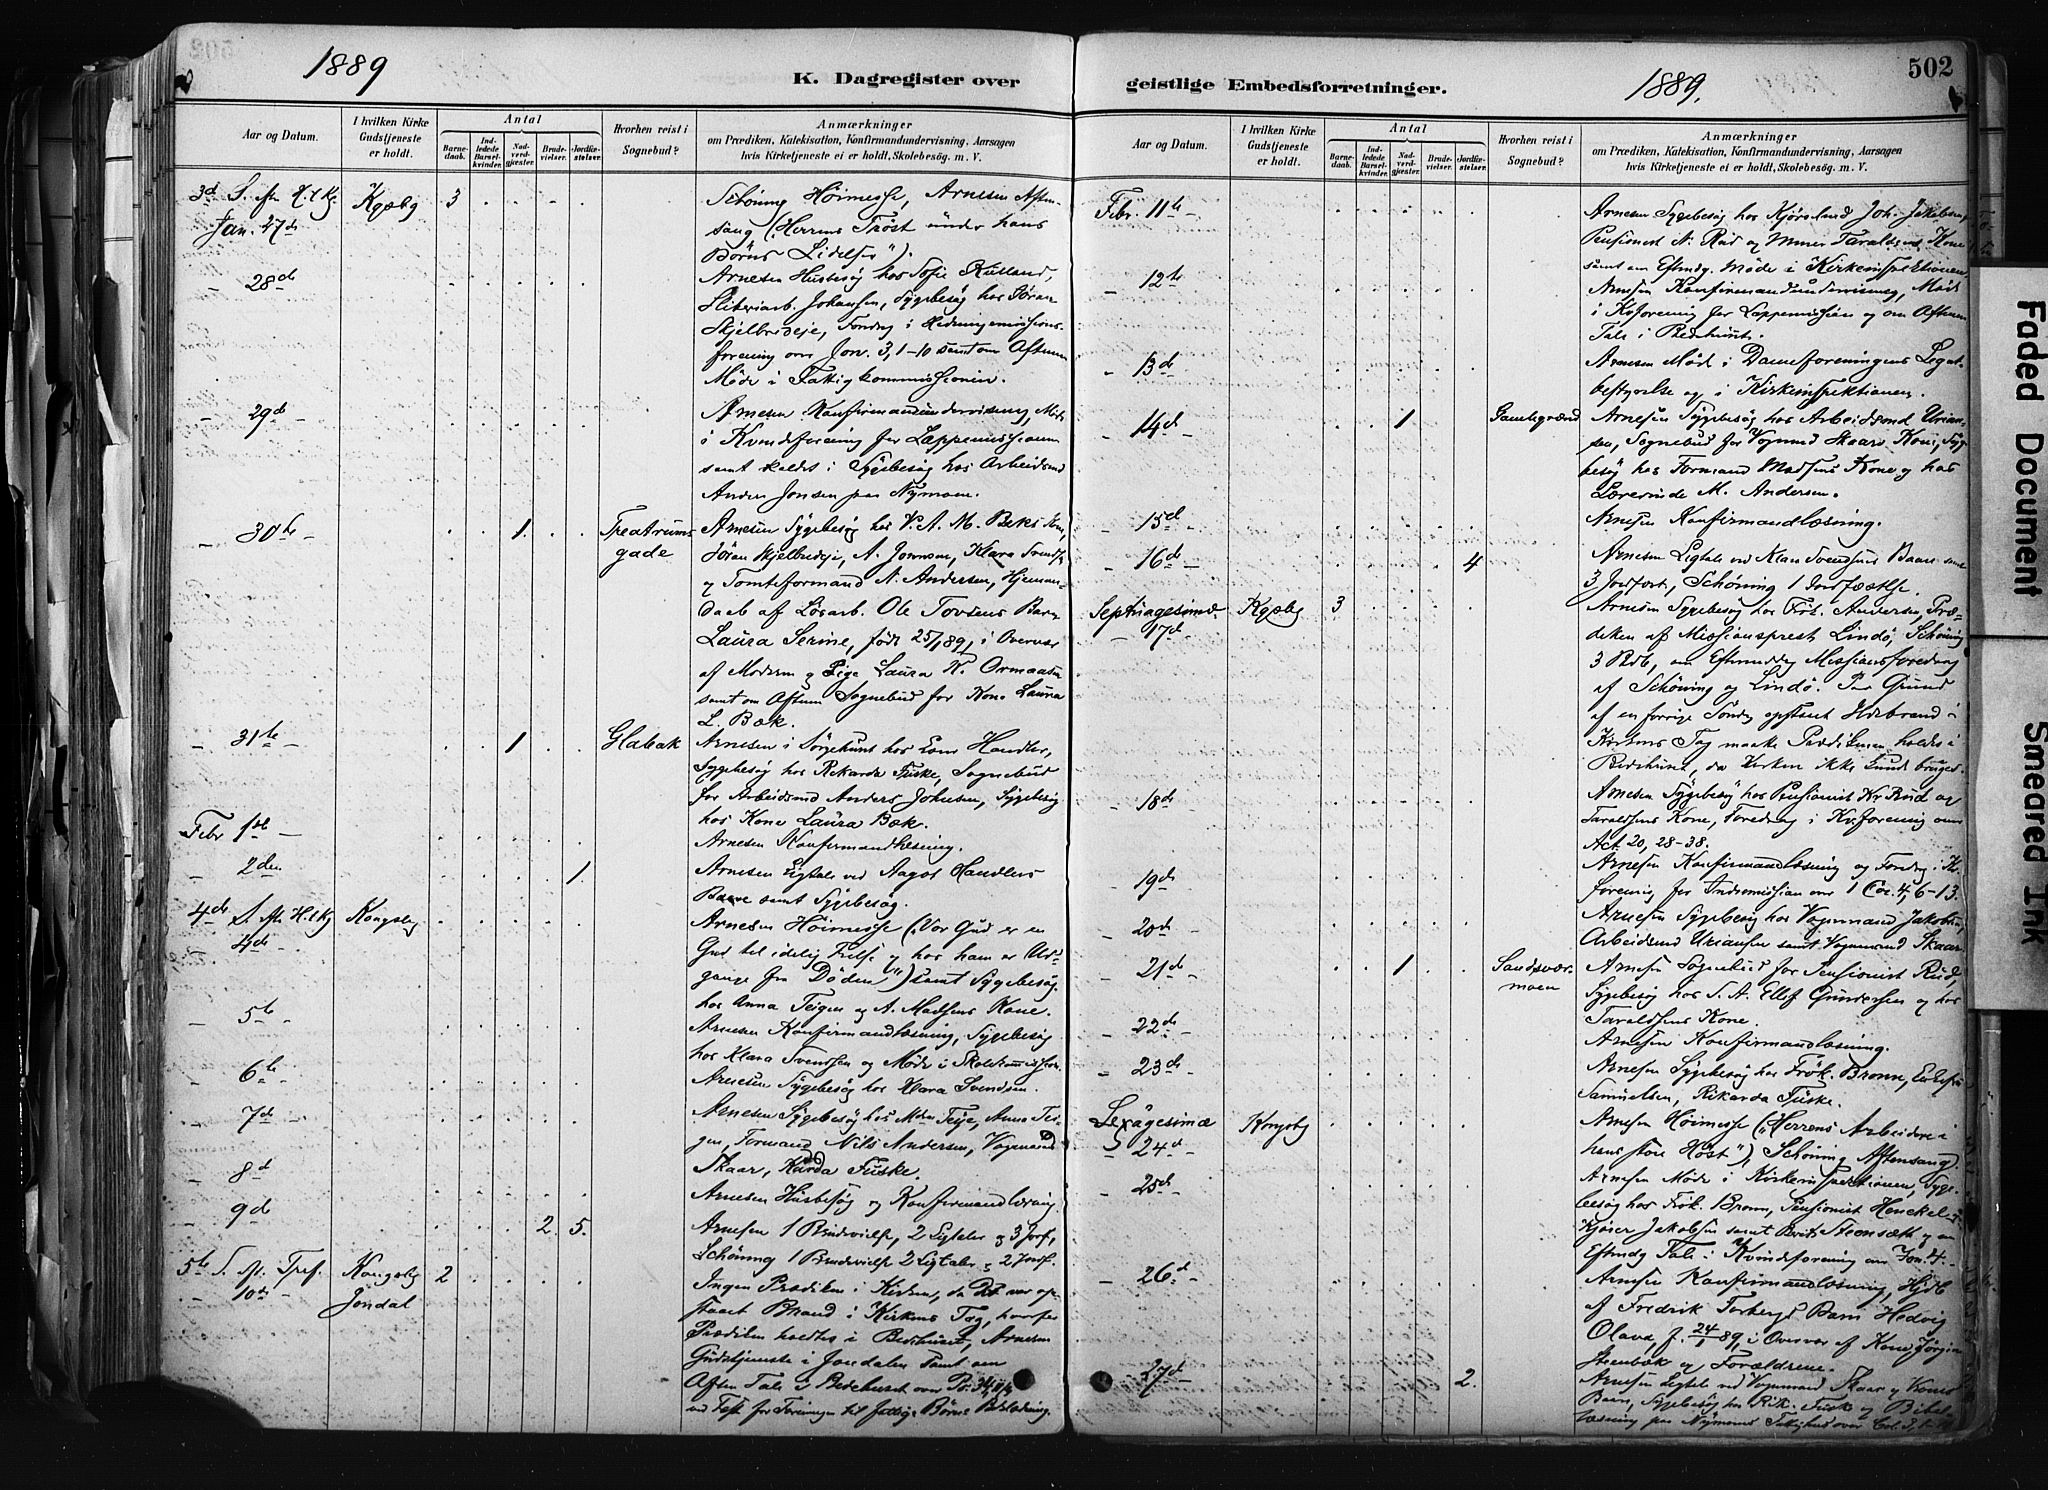 1889
K. Dagregister over
Aar og Datum.
I hvilken Kirke Gudstjeneste er holdt.
Antal
Barnedaab.
Indledede Barselkvinder.
Nadverdgjester.
Brudevielser.
Jordfæstelser.
Hvorhen reist i Sognebud?
Anmærkninger
om Prædiken, Katekisation, Konfirmandundervisning, Aarsagen
hvis Kirketjeneste ei er holdt, Skolebesøg. m. V.
3d S. efter H.t.Kg. Kgsbg 3 Schöning Höimesse, Arnesen Aften-
Jan. 27de sang ("Herrens Tröst under hans
Börns Lidelser").
28de Arnesen Husbesög hos Sofie Rusland,
Sliberiarb. Johansen, Sygebesög hos Sören
Skjelbredeje, Foredrag i Hedningemissions-
forening over Joh. 3, 1-10 samt om Aftenen
Möde i Fattigkommissionen.
29de Arnesen Konfirmandundervisning, Möde
i Kvindeforening for Lappemissionen
samt i Sygebesög hos Arbeidsmd
Anders Jonsen paa Nymoen.
30te 1. Theatrums- Arnesen Sygebesög hos V. A. M. Beks
gade Sören Skjelbredeje, A. Jonnson, Klara Svends.
og Tomteformand N. Andersen, Hjemme-
daab af Lösarb. Ole Tovsens Barn
Laura Serine, födt 25/1 89, i Overvær
af Moderen og Pige Laura N. Ormaasen
samt om Aftenen Sognebud for Kone Laura
L. Bæk.
31te 1 Glabak Arnesen i Sörgehuset hos Handler,
Sygebesög hos Rikarda Fuske, Sognebud
for Arbeidsmd Anders Johnsen, Sygebesög
hos Kone Laura Bæk.
Febr 1ste Arnesen Konfirmandlæsning.
2den 1. Arnesen Ligtale ved Aagot Handlers
Baare samt Sygebesög.
4de S. efter H.t.Kg Kongsberg Arnesen Höimesse ("Vor Gud er en
4de Gud til idelig Frelse og hos ham er Ud-
gange fra Döden") samt Sygebesög
hos Anna Teigen og A. Madsens Kone.
5te Arnesen Konfirmandlæsning, Sygebesög
hos Klara Svendsen og Möde i Skolekommission.
6te Arnesen Sygebesög hos Klara Svendsen.
7de Arnesen Sygebesög hos Teije, Anna Tei-
gen, Formand Nils Andersen, Vognmand
8de Skaar, Fuske.
Arnesen Husbesög og Konfirmandlæsning
9de 2. 5. Arnesen 1 Brudevielse, 2 Ligtaler og 3 Jordf.,
Schöning 1 Brudevielse 2 Ligtaler og 2 Jordf.
5te S. efter Kongsbg 2 Ingen Prædiken i Kirken, da der var op-
10de Jondal staaet Brand i Kirkens Tag, hvorfor
Prædiken holdtes i Bedehuset, Arnesen
Gudstjeneste i Jondalen samt om
Aften Tale i Bedehuset over
ved Fest for Foreningen til fattige Börns Beklædning.
502
geistlige Embedsforretninger.
1889.
Aar og Datum.
I hvilken Kirke Gudstjeneste er holdt.
Antal
Barnedaab.
Indledede Barselkvinder.
Nadverdgjester.
Brudevielser.
Jordfæstelser.
Hvorhen reist i Sognebud?
Anmærkninger
om Prædiken, Katekisation, Konfirmandundervisning, Aarsagen
hvis Kirketjeneste ei er holdt, Skolebesøg. m. V.
Febr. 11te Arnesen Sygebesög hos Joh. Jakobsen,
Pensionist N. Rud og Miner Taraldsens Kone
samt om Eftmdg. Möde i Kirkeinspektionen
12te Arnesen Konfirmandundervisning, Möde
i Kvforening for Lappemissionen og om Aftenen
Tale i Bedehuset.
13de Arnesen Möde i Dameforeningens Legat-
bestyrelse og i Kirkeinspektionen.
14de 1 Gamlegrænd Arnesen Sygebesög hos Arbeidsmd Urian-
sen, Sognebud for Vognmd Skaars Kone, Syge-
besög hos Formand Madsens Kone og hos
Lærerinde M. Andersen.
15de Arnesen Konfirmandlæsning.
16de 4 Arnesen Ligtale ved Klara Svendsens Baare samt
3 Jordfæst, Schöning 1 Jordfæstelse.
Septuagesimæ Kgsbg 3 Arnesen Sygebesög hos Frk. Andersen, Præ-
17de diken af Missionsprest Lindö, Schöning
3 Bdb, om Eftermiddag Missionsforedrag
af Schöning og Lindö. Paa Grund
af en forrige Söndag opstaaet Ildebrand i
Kirkens Tag maatte Prædikenen holdes i
Bedehuset, da Kirken ikke kunde bruges.
18de Arnesen Sygebesög hos Pensionist Rud og
Taraldsens Kone, Foredrag i Kv.forening over
Act. 20, 28-38.
19de Arnesen Konfirmandlæsning og Foredrag i Kv.
forening for Indremissionen over 1 Cor. 4, 6-13.
20de Arnesen Sygebesög hos Vognmand Jakobsen,
Arbeidsmd Uriansen samt Vognmand Skaar
21de 1 Sandsvær- Arnesen Sognebud for Pensionist Rud,
moen Sygebesög hos S. A. Ellef Gundersen og hos
Taraldsens Kone.
22de Arnesen Konfirmandlæsning.
23de Arnesen Sygebesög hos Frök. Bronn,
Samuelsen, Rikarda Fuske.
Sexagesimæ Kongsbg Arnesen Höimesse ("Herrens Arbeidere i
24de hans store Höst"), Schöning Aftensang.
25de Arnesen Möde i Kirkeinspektionen, Syge-
besög hos Frök. Bronn, Pensionist Henckel,
Jakobsen samt Berit Steensæth og om
Eftmdg Tale i Kvindeforening over Joh. 4.
26de Arnesen Konfirmandlæsning, Hjdb
af Fredrik Torbergs Barn Hedvig
Olava, f. 24/1 89, i Overvær af Kone Jörgine
Steenbæk og Forældrene.
27de 2. Arnesen Ligtale ved Vognmand Skaar og Kones
Barn, Sygebesög hos Rik. Fuske og Bibel-
læsning paa Nymoens Fattighus over Col.
Faded Document
Smeared Ink